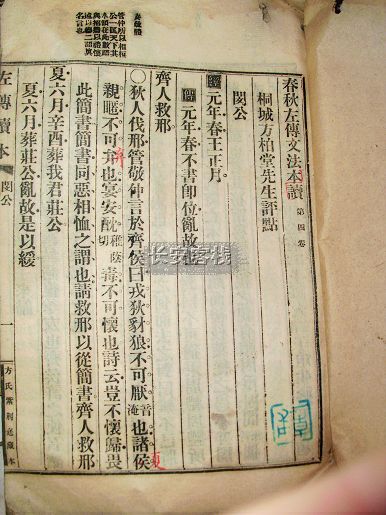 春秋左傳文法讀本 第四卷
桐城方柏堂先生評點
閔公
經 元年春王正月
齊人救邢
傳 元年春不書即位亂故也
○狄人伐邢管敬仲言於齊侯曰戎狄豺狼不可厭 音淹 也諸侯
親暱不可弃也宴安酖 切 毒不可懷也詩云豈不懷歸畏
此簡書簡書同惡相恤之謂也請救邢以從簡書齊人救邢
夏六月辛酉葬我君莊公
夏六月葬莊公亂故是以緩
左傳讀本
閔公
一
方氏
藏本
長安客栈